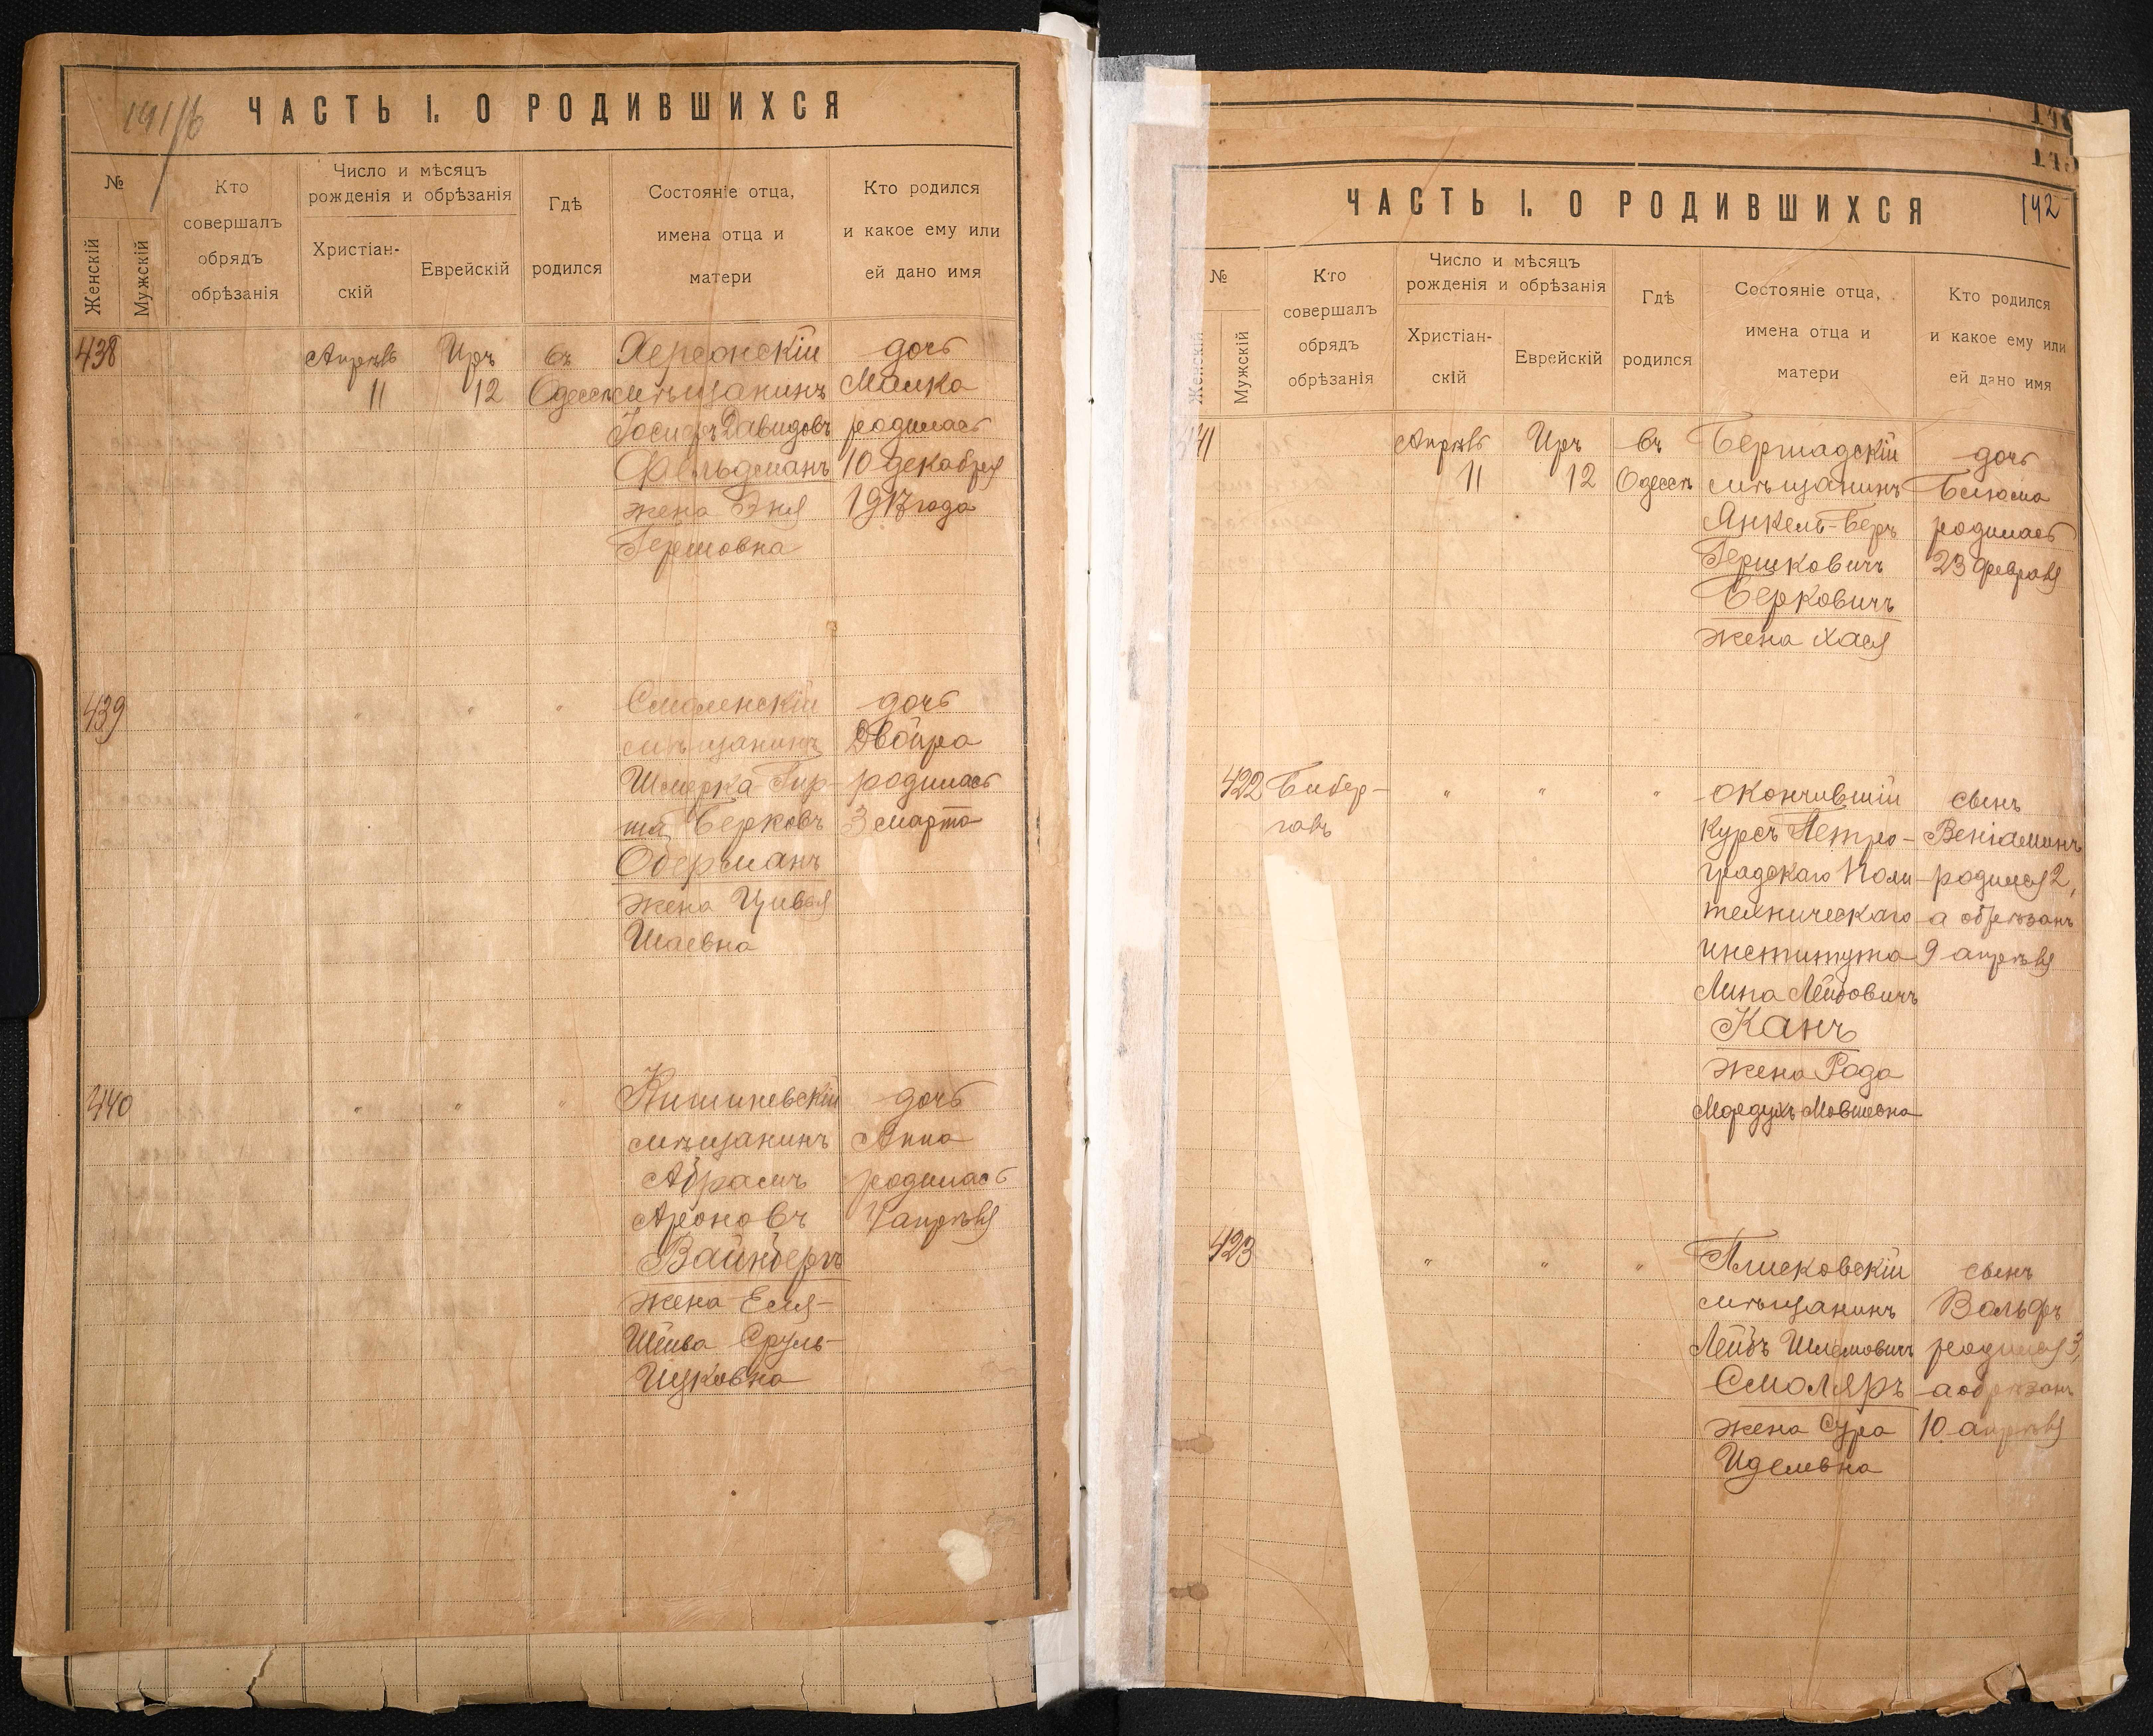 141/б
ЧАСТЬ I. О РОДИВШИХСЯ
№
Женскій
Мужскій
Кто совершалъ обрядъ обрѣзанія
Число и мѣсяцъ рожденія и обрѣзанія
Христіан-скій
Еврейскій
Гдѣ родился
Состояніе отца, имена отца и матери
Кто родился и какое ему или ей дано имя
438
Апрѣль
11
Иръ
12
въ
Одессѣ
Херсонскій
мѣщанинъ
Іосифъ Давидовъ
Фельдманъ
жена Эня
Гершовна
дочь
Малка
родилась
10 декабря
1917 года
439
" " "
Смоленскій
мѣщанинъ
Шмерка Гир-
ша Берковъ
Оберманъ
жена Цивья
Шаевна
дочь
Двойра
родилась
3 марта
440
" " "
Кишиневскій
мѣщанинъ
Абрамъ
Ароновъ
Вайнбергъ
жена Еля-
Шейва Сруль-
Ицковна
дочь
Анна
родилась
апрѣля
142
ЧАСТЬ I. О РОДИВШИХСЯ
№
Женскій
Мужскій
Кто совершалъ обрядъ обрѣзанія
Число и мѣсяцъ рожденія и обрѣзанія
Христіан-скій
Еврейскій
Гдѣ родился
Состояніе отца, имена отца и матери
Кто родился и какое ему или ей дано имя
441
Апрѣль
11
Иръ
12
въ
Одессѣ
Бершадскій
мѣщанинъ
Янкель-Беръ
Гершковичъ
Берковичъ
жена Хася
дочь
родилась
23 февраля
422
Бибер-
галь
" " "
окончившій
курсъ Петро-
градскаго Поли-
техническаго
института
Липа Лейбовичъ
Канъ
жена Рода
Мовшевна
сынъ
Веніаминъ
родился 2,
а обрѣзанъ
9 апрѣля
423
" " " "
Плисковскій
мѣщанинъ
Лейбъ Шлемовичъ
Смоляръ
жена Сура
Иделевна
сынъ
Вольфъ
родился 3,
а обрѣзанъ
10 апрѣля